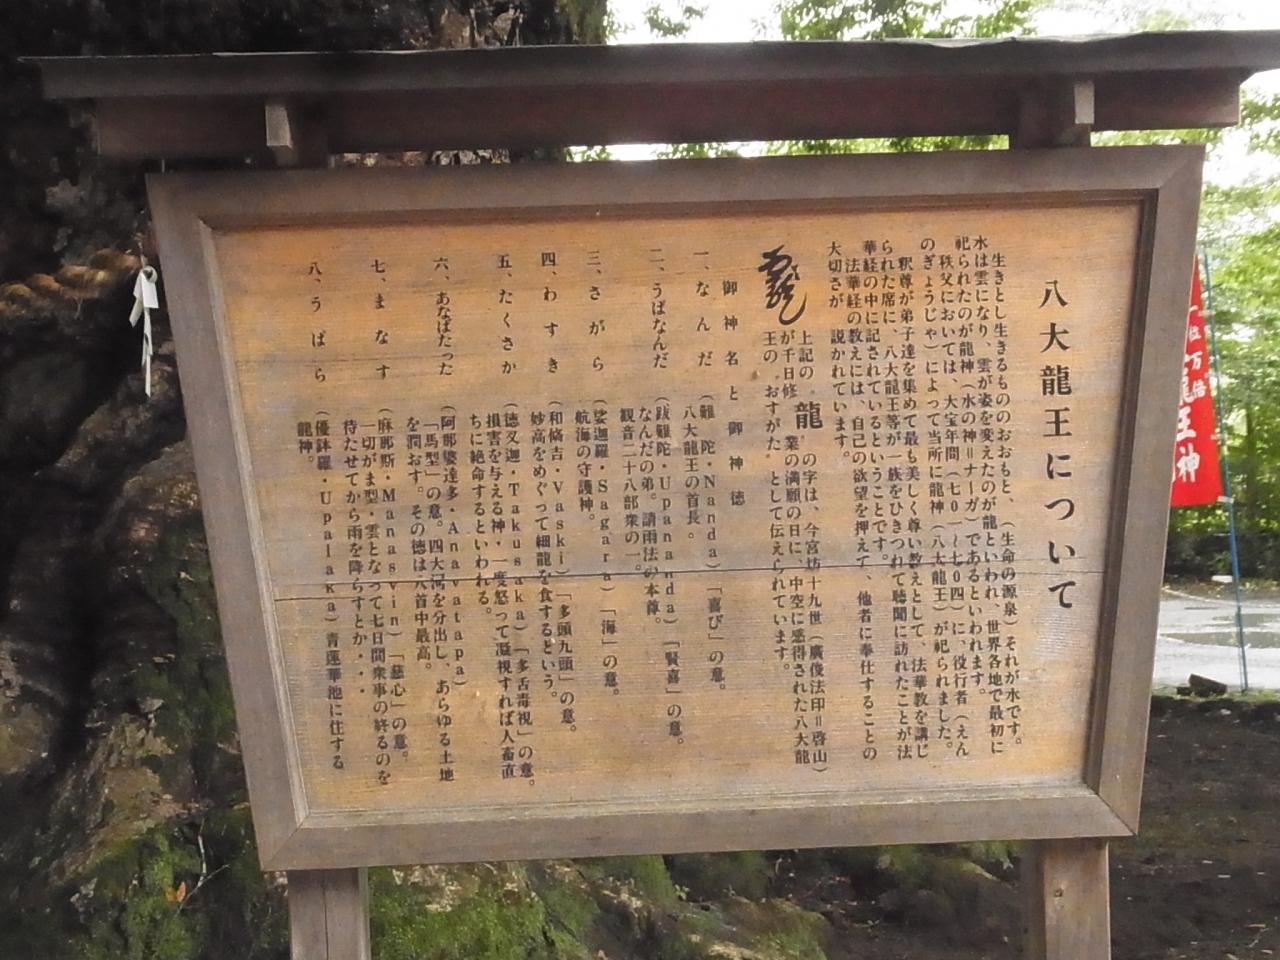 八大龍王について
生きとし生きるもののおおもと、(生命の源泉)それが水です。
水は雲になり、雲が姿を変えたのが龍といわれ、世界各地で最初に
祀られたのが龍神(水の神=ナーガ)であるといわれます。
秩父においては、大宝年間(七〇一~七〇四)に、役行者(えん
のぎょうじゃ)によって当所に龍神(八大龍王)が祀られました。
釈尊が弟子達を集めて最も美しく尊い教えとして、法華教を講じ
られた席に、八大龍王等が一族をひきつれて聴聞に訪れたことが法
華経の中に記されているということです。
法華経の教えには、自己の欲望を押えて、他者に奉仕することの
大切さが 説かれています。
龍
上記の 龍 の字は、今宮坊十九世(廣俊法印=啓山)
が千日修 業の満願の日に、中空に感得された八大龍
王の おすがた として伝えられています。
御神名と御神徳
一、なんだ (難陀・Nanda)「喜び」の意。
八大龍王の首長。
二、うばなんだ (跋難陀・Upananda)「賢喜」の意。
なんだの弟。請雨法の本尊。
観音二十八部衆の一。
三、さがら (娑迦羅・Sagara)「海」の意。
航海の守護神。
四、わすき (和脩吉・Vaski)「多頭九頭」の意。
妙高をめぐって細龍を食するという。
五、たくさか (徳叉迦・Takusaka)「多舌毒視」の意。
損害を与える神・一度怒って凝視すれば人畜直
ちに絶命するといわれる。
六、あなばたった (阿那婆達多・Anavatapa)
「馬型」の意。四大河を分出し、あらゆる土地
を潤おす。その徳は八首中最高。
七、まなす (麻那斯・Manasvin)「慈心」の意。
一切がま型・雲となって七日間衆事の終るのを
待たせてから雨を降らすとか・・・
八、うぱら (優鉢羅・Upalaka)青蓮華池に住する
龍神。
万倍
龍王神